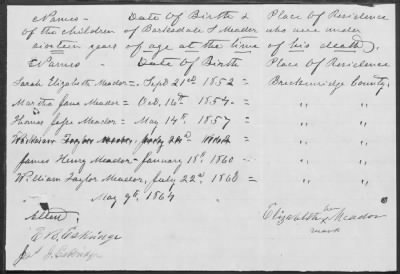 Names - Date Of Birth & Place Of Residence
of the children of Barksdale S Meador who were under
sixteen years of age at the time of his death.
Names - Date Of Birth Place Of Residence
Sarah Elizabeth Meador = Sept 21st 1852 = Breckenridge County,
Martha Jane Meador = Oct. 14th 1854 = " "
Thomas Jeffe Meador = May 14th 1857 = " "
William Taylor Meador July 22d
James Henry Meador - January 18th 1860 - " "
William Taylor Meador, July 22d 1860 = " "
May 9th 1864
Attest. Elizabeth her x Meador
mark
E R Eskridge
J. Eskridge